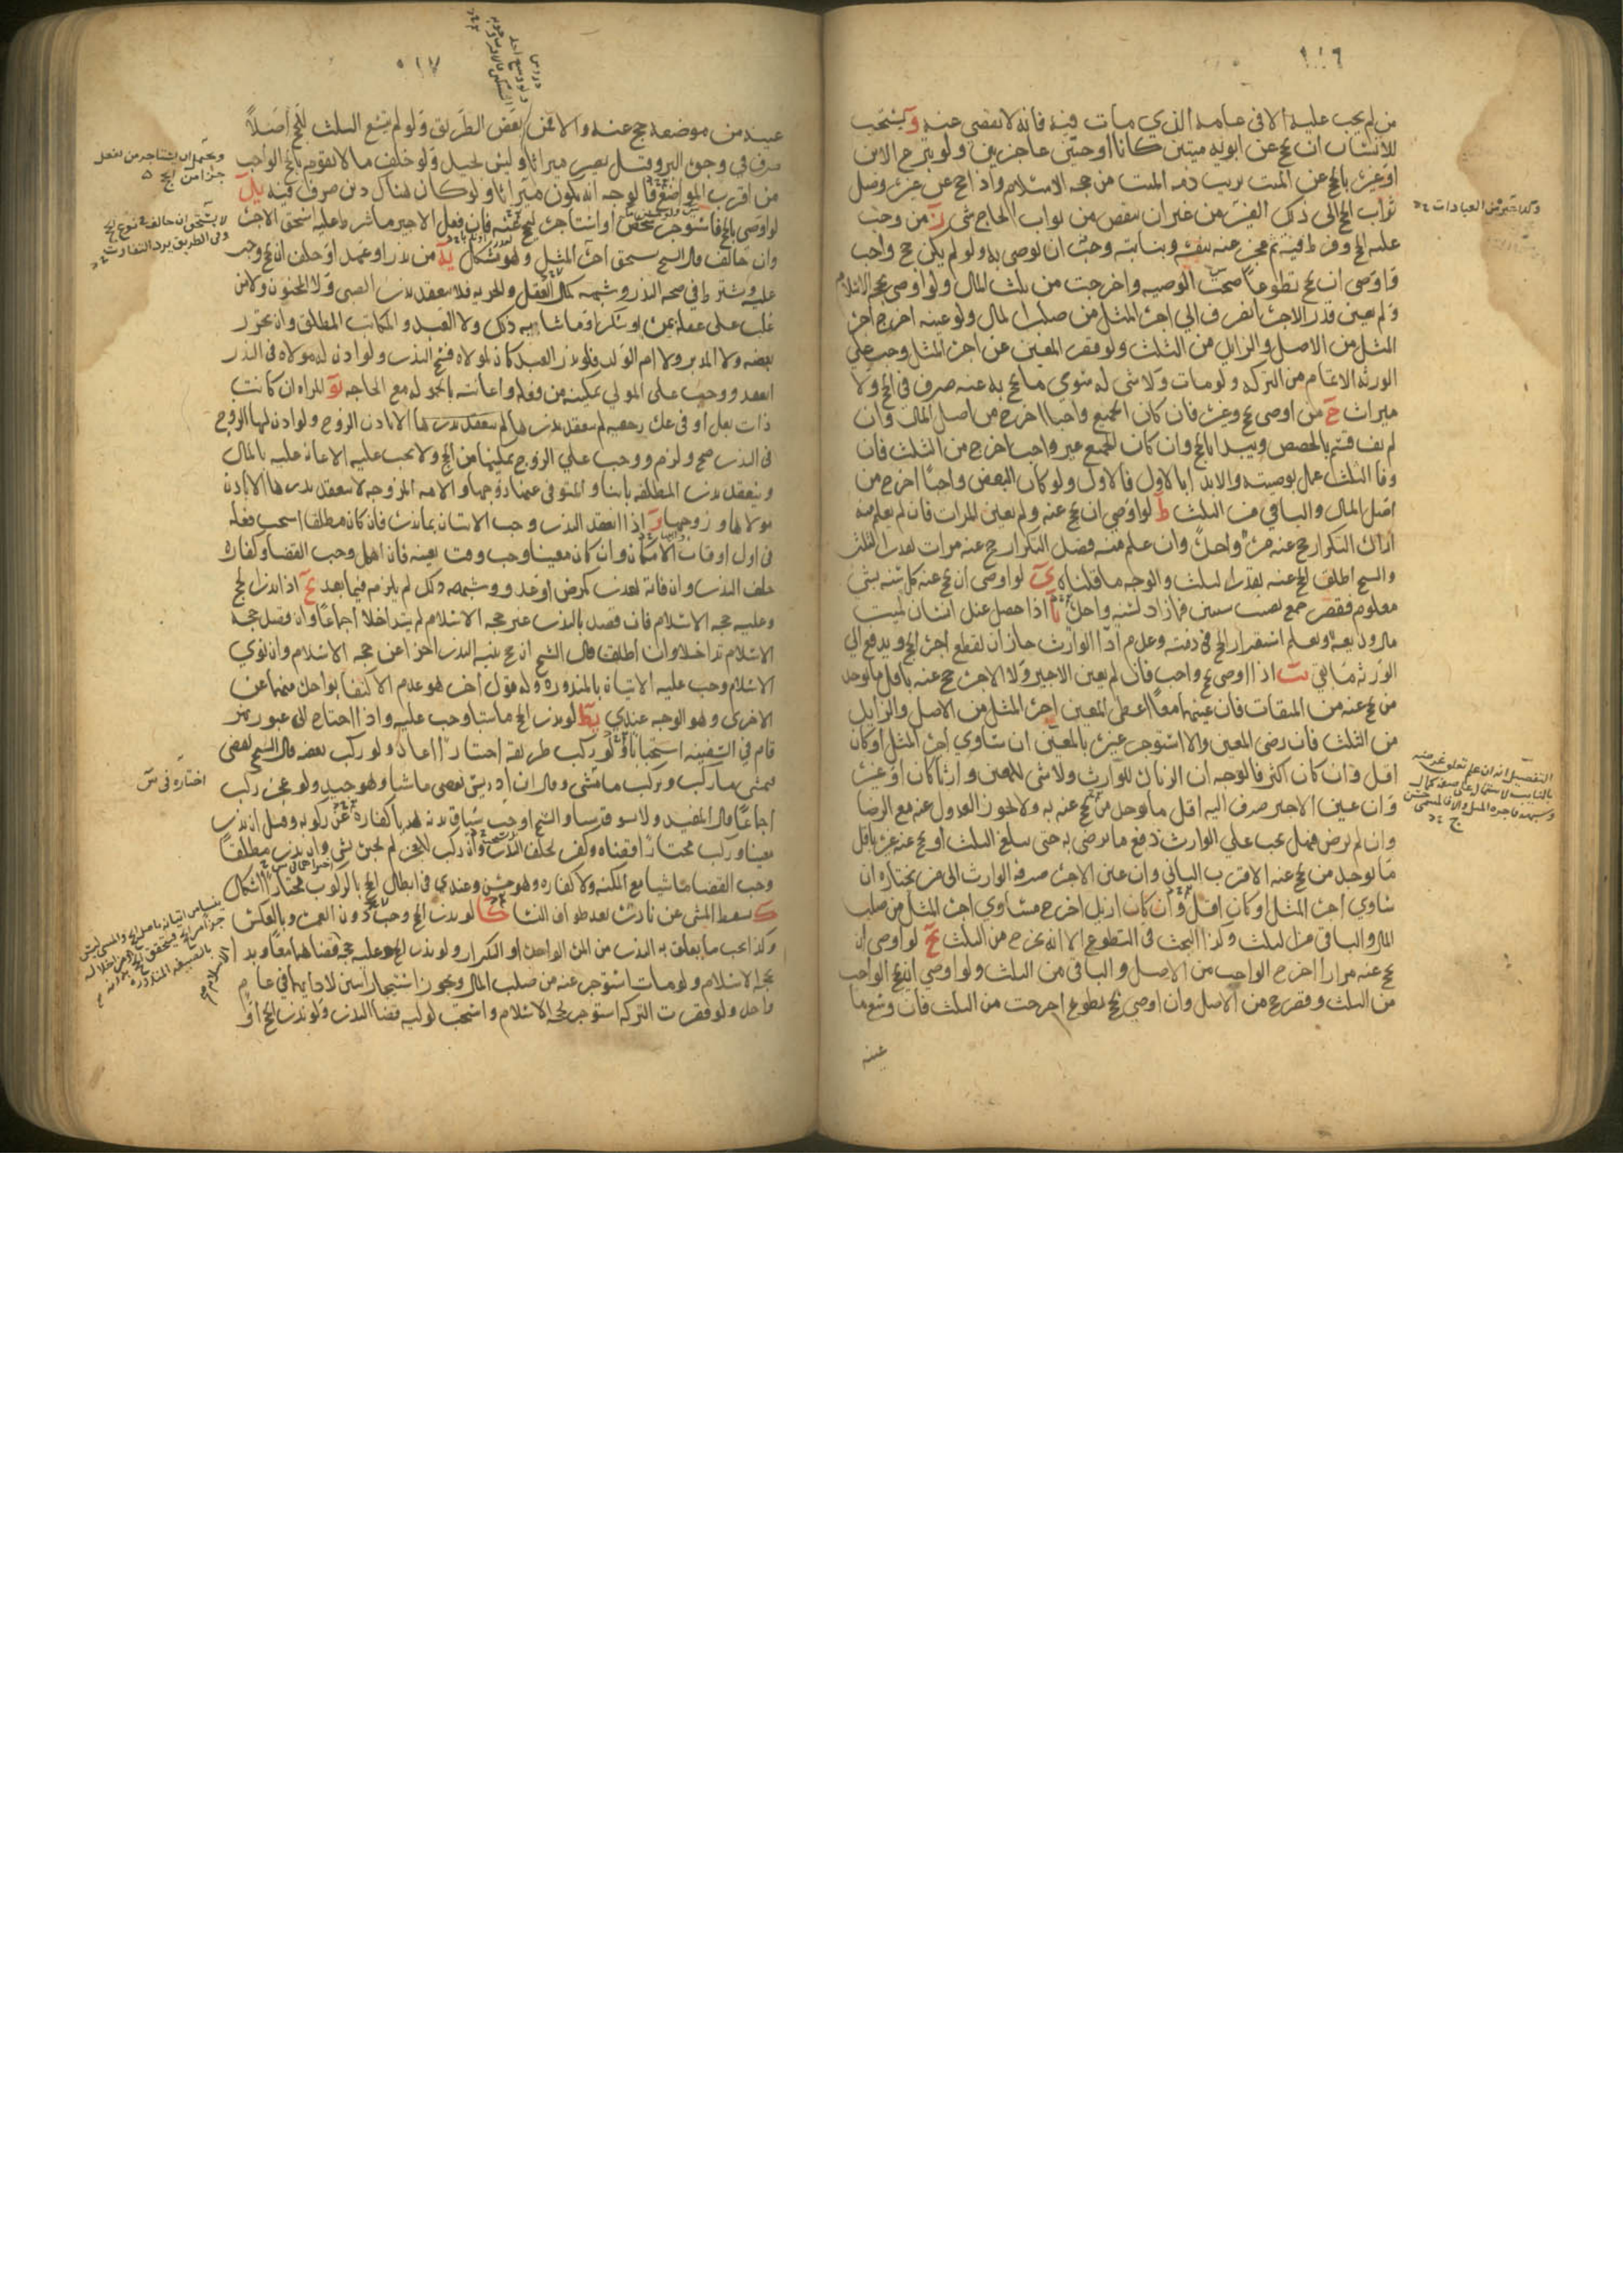 ١١٦
من لم يجب عليه الا فى عامه الذي مات فيه فانه لا يقضى عنه و يستحب
للانسان ان يحج عن ابويه ميتين كانا او حيين عاجزين ولو تبرع الابن
او غيره بالحج عن الميت برئت ذمه الميت من حجه الاسلام واذا حج عن غيره وصل
ثواب الحج الى ذلك الغير من غير ان ينقص من ثواب الحاج شى ز من وجب
عليه الحج وفرط فيه ثم عجز عنه بنفسه وبنيابته وجب ان يوصى به ولو لم يكن حج واجب
فاوصى ان يحج تطوعا صحت الوصيه واخرجت من ثلث المال ولو اوصى بحجه الاسلام
ولم يعين قدر الاجره انصرف الي اجره المثل من صلب المال ولو عينه اخرج اجره
المثل من الاصل والزايد من الثلث ولو قصر المعين عن اجره المثل وجب علي
الورثه الاتمام من التركه ولو مات ولا شى له سوي ما يحج به عنه صرف فى الحج ولا
ميراث ح من اوصى بحج وغيره فان كان الجميع واجبا اخرج من اصل المال وان
لم يف قسم بالحصص ويبدا بالحج وان كان الجميع غير واجب اخرج من الثلث فان
وفا الثلث عمل بوصيته والا بدا بالاول فالاول ولو كان البعض واجبا اخرج من
اصل المال والباقي من الثلث ط لو اوصى ان يحج عنه ولم يعين المرات فان لم يعلم منه
اراده التكرار حج عنه مره واحده وان علم منه قصد التكرار حج عنه مرات بقدر الثلث
والشيخ اطلق الحج عنه بقدر الثلث والوجه ما قلناه ي لو اوصى ان يحج عنه كل سنه بشى
معلوم فقصر جمع نصيب سنين فما زاد لسنه واحده يا اذا حصل عند انسان لميت
مال وديعه ويعلم استقرار الحج فى ذمته وعدم ادا الوارث جاز ان يقطع اجره الحج ويدفع الي
الورثه ما بقي يب اذا اوصى بحج واجب فان لم يعين الاجير ولا الاجره حج عنه باقل ما يوجد
من يحج عنه من الميقات فان عينهما معا اعطى المعين اجره المثل من الاصل والزايد
من الثلث فان رضى المعين والا استوجر غيره بالمعين ان ساوي اجره المثل او كان
اقل وان كان اكثر فالوجه ان الزياده للوارث ولا شى للمعين وارثا كان او غيره
وان عين الاجير صرف اليه اقل ما يوجد من يحج عنه به ولا يجوز العدول عنه مع الرضا
وان لم يرض فهل يجب علي الوارث دفع ما يرضى به حتى يبلغ الثلث او يحج عنه غيره باقل
ما يوجد من يحج عنه الاقرب الثانى وان عين الاجره صرفها الوارث الى من يختاره ان
ساوي اجره المثل او كان اقل وان كان ازيد اخرج مساوي اجره المثل من صلب
المال والباقى من الثلث وكذا البحث فى التطوع الا انه يخرج من الثلث يج لو اوصى ان
يحج عنه مرارا اخرج الواجب من الاصل والباقى من الثلث ولو اوصي ان يحج الواجب
من الثلث وقصر حج من الاصل وان اوصي بحج تطوع اخرجت من الثلث فان وسع ما
عينه
وكذا غيره من العبادات
٥١٧
عينه من موضعه حج عنه والا فمن بعض الطريق ولو لم يسع الثلث للحج اصلا
صرف في وجوه البر وقيل يصير ميراثا وليس بجيد ولو خلف ما لا يقوم بالحج الواجب
من اقرب المواضع فالوجه انه يكون ميراثا ولو كان هناك دين صرف فيه يد
لو اوصى بالحج فاستوجر شخص او استاجر ليحج عنه فان فعل الاجير ما شرط عليه استحق الاجره
وان خالف قال الشيخ يستحق اجره المثل وهو مشكل يه من نذر او عهد او حلف ان يحج وجب
عليه ويشترط في صحه النذر وشبهه كمال العقل والحريه فلا ينعقد نذر الصبى ولا المجنون ولا من
غلب على عقله بمرض او سكر او ما شابه ذلك ولا العبد والمكاتب المطلق وان تحرر
بعضه ولا المدبر ولا ام الولد فلو نذر العبد كان لمولاه فسخ النذر ولو اذن له مولاه فى النذر
انعقد ووجب على المولي تمكينه من فعله واعانته بالحموله مع الحاجه يو المراه ان كانت
ذات بعل او فى عده رجعيه لم ينعقد نذرها الا باذن الزوج ولو اذن لها الزوج
فى النذر صح ولزم ووجب علي الزوج تمكينها من الحج ولا يجب عليه الاعانه عليه بالمال
وينعقد نذر المطلقه باينا والمتوفى عنها زوجها والامه المزوجه لا ينعقد نذرها الا باذن
مولاها وزوجها يز اذا انعقد النذر وجب الاتيان بما نذره فان كان مطلقا استحب فعله
فى اول اوقات الامكان وان كان معينا وجب وقت تعينه فان اهمل وجب القضا وكفاره
خلف النذر وان فاته لعذر كمرض او عدو وشبهه ذلك لم يلزمه فيما بعد يح اذا نذر الحج
وعليه حجه الاسلام فان قصد بالنذر غير حجه الاسلام لم يتداخلا اجماعا وان قصد حجه
الاسلام تداخلا وان اطلق قال الشيخ ان حج بنيه النذر اجزا عن حجه الاسلام وان نوي
الاسلام وجب عليه الاتيان بالمنذوره وله قول اخر هو عدم الاكتفا بواحده منهما عن
الاخرى وهو الوجه عندي يط لو نذر الحج ماشيا وجب عليه واذا احتاج الى عبور نهر
قام في السفينه استحبابا ولو ركب طريقه اختيارا اعاد ولو ركب بعضه قال الشيخ يقضى
فيمشى ما ركب ويركب ما مشى وقال ابن ادريس يقضى ماشيا وهو جيد ولو عجز ركب
اجماعا قال المفيد ولا يسوق بدنه والشيخ اوجب سياق بدنه كفاره عن ركوبه وقيل ان نذر
معينا وركب مختارا قضاه وكفر لخلف النذر وان ركب لعجز لم يجبر بشى وان نذر مطلقا
وجب القضا ماشيا مع المكنه ولا كفاره وهو حسن وعندي فى ابطال الحج بالركوب مختارا اشكال
ك يسقط المشى عن ناذره بعد طواف النسا كا لو نذر الحج وجب دون العمره وبالعكس
وكذا يجب ما يعلق به النذر من المره الواحده او التكرار ولو نذر الحج وعليه حجه قضاهما معا وبدا
بحجه الاسلام ولو مات استوجر عنه من صلب المال ويجوز استيجار اثنين لادايهما في عام
واحد ولو قصرت التركه استوجر لحجه الاسلام واستحب لوليه قضا النذر ولو نذر الحج او
اختاره فى س